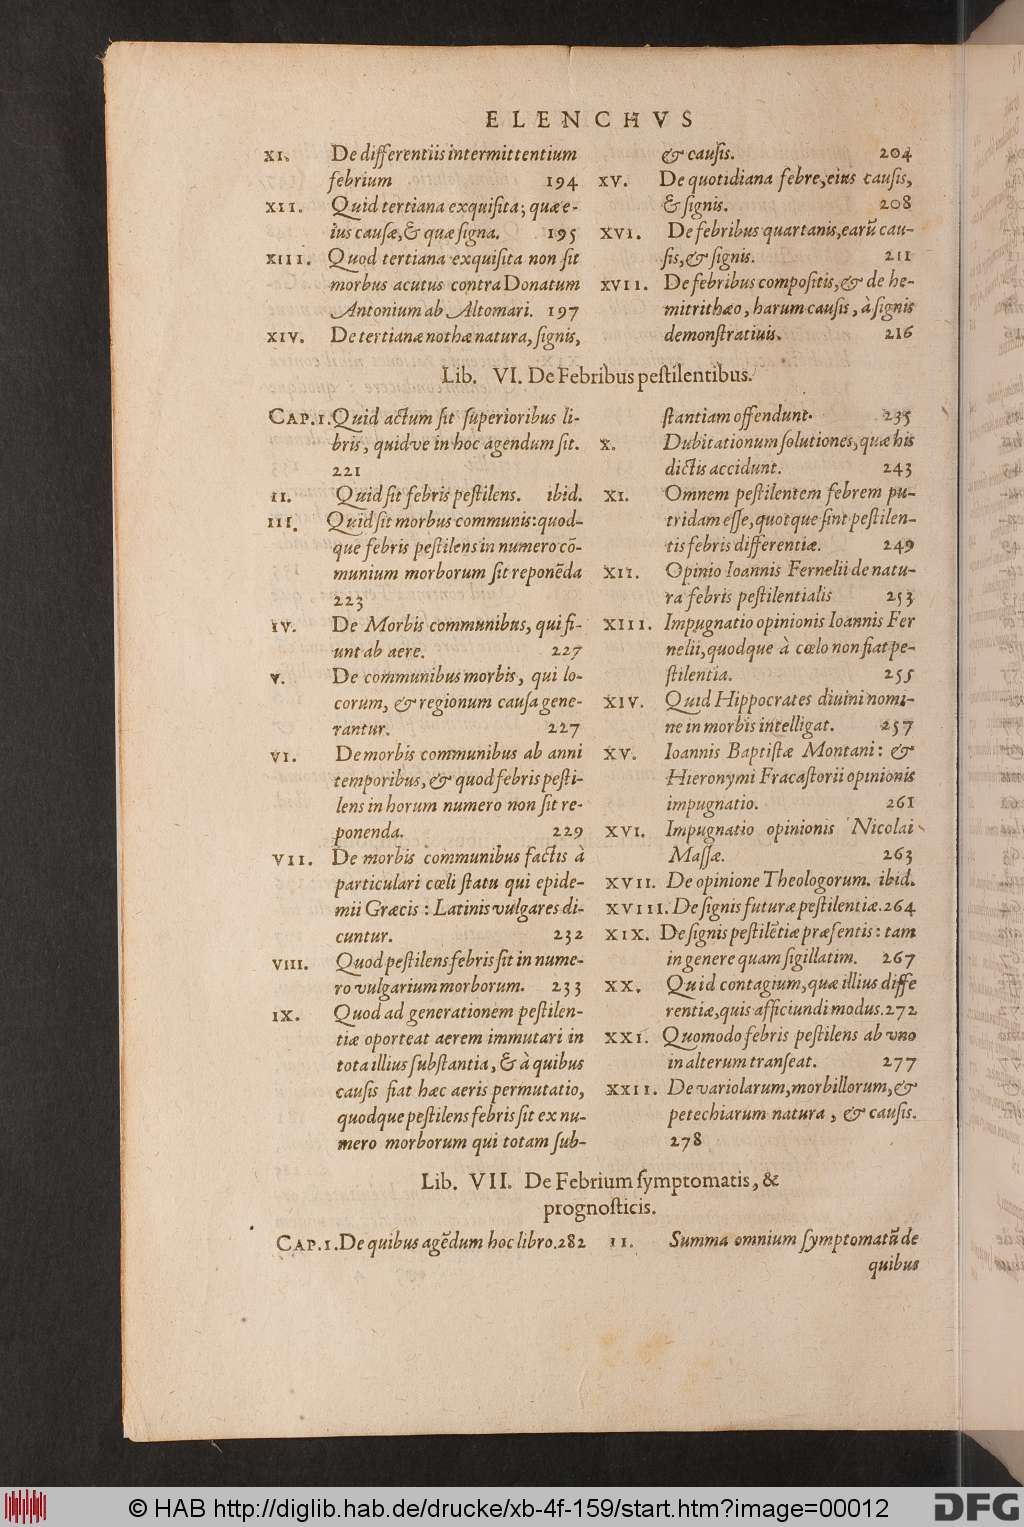 ELENCHVS
XI. De differentiis intermittentium
febrium 194
XII. Quid tertiana exquisita; quæ e-
ius causæ, & quæ signa. 195
XIII. Quod tertiana exquisita non sit
morbus acutus contra Donatum
Antonium ab Altomari. 197
XIV. De tertianæ nothæ natura, signis,
& causis. 204
XV. De quotidiana febre, eius causis,
& signis. 208
XVI. De febribus quartanis, earũ cau-
sis, & signis. 211
XVII. De febribus compositis, & de he-
mitrithæo, harum causis, à signis
demonstratiuis. 216
Lib. VI. De Febribus pestilentibus.
CAP. I. Quid actum sit superioribus li-
bris, quidve in hoc agendum sit.
221
II. Quid sit febris pestilens. ibid.
III. Quid sit morbus communis: quod-
que febris pestilens in numero cõ-
munium morborum sit reponẽda
223
IV. De Morbis communibus, qui fi-
unt ab aere. 227
V. De communibus morbis, qui lo-
corum, & regionum causa gene-
rantur. 227
VI. De morbis communibus ab anni
temporibus, & quod febris pesti-
lens in horum numero non sit re-
ponenda. 229
VII. De morbis communibus factis à
particulari cœli statu qui epide-
mii Græcis: Latinis vulgares di-
cuntur. 232
VIII. Quod pestilens febris sit in nume-
ro vulgarium morborum. 233
IX. Quod ad generationem pestilen-
tiæ oporteat aerem immutari in
tota illius substantia, & à quibus
causis fiat hæc aeris permutatio,
quodque pestilens febris sit ex nu-
mero morborum qui totam sub-
stantiam offendunt. 235
X. Dubitationum solutiones, quæ his
dictis accidunt. 243
XI. Omnem pestilentem febrem pu-
tridam esse, quotque sint pestilen-
tis febris differentiæ. 249
XII. Opinio Ioannis Fernelii de natu-
ra febris pestilentialis 253
XIII. Impugnatio opinionis Ioannis Fer
nelii, quodque à cœlo non fiat pe-
stilentia. 255
XIV. Quid Hippocrates diuini nomi-
ne in morbis intelligat. 257
XV. Ioannis Baptistæ Montani: &
Hieronymi Fracastorii opinionis
impugnatio. 261
XVI. Impugnatio opinionis Nicolai
Massæ. 263
XVII. De opinione Theologorum. ibid.
XVIII. De signis futuræ pestilentiæ. 264
XIX. De signis pestilẽtiæ præsentis: tam
in genere quam sigillatim. 267
XX. Quid contagium, quæ illius diffe
rentiæ, quis afficiundi modus. 272
XXI. Quomodo febris pestilens ab vno
in alterum transeat. 277
XXII. De variolarum, morbillorum, &
petechiarum natura, & causis.
278
Lib. VII. De Febrium symptomatis, &
prognosticis.
CAP. I. De quibus agẽdum hoc libro. 282
II. Summa omnium symptomatũ de
quibus
© HAB http://diglib.hab.de/drucke/xb-4f-159/start.htm?image=00012
DFG